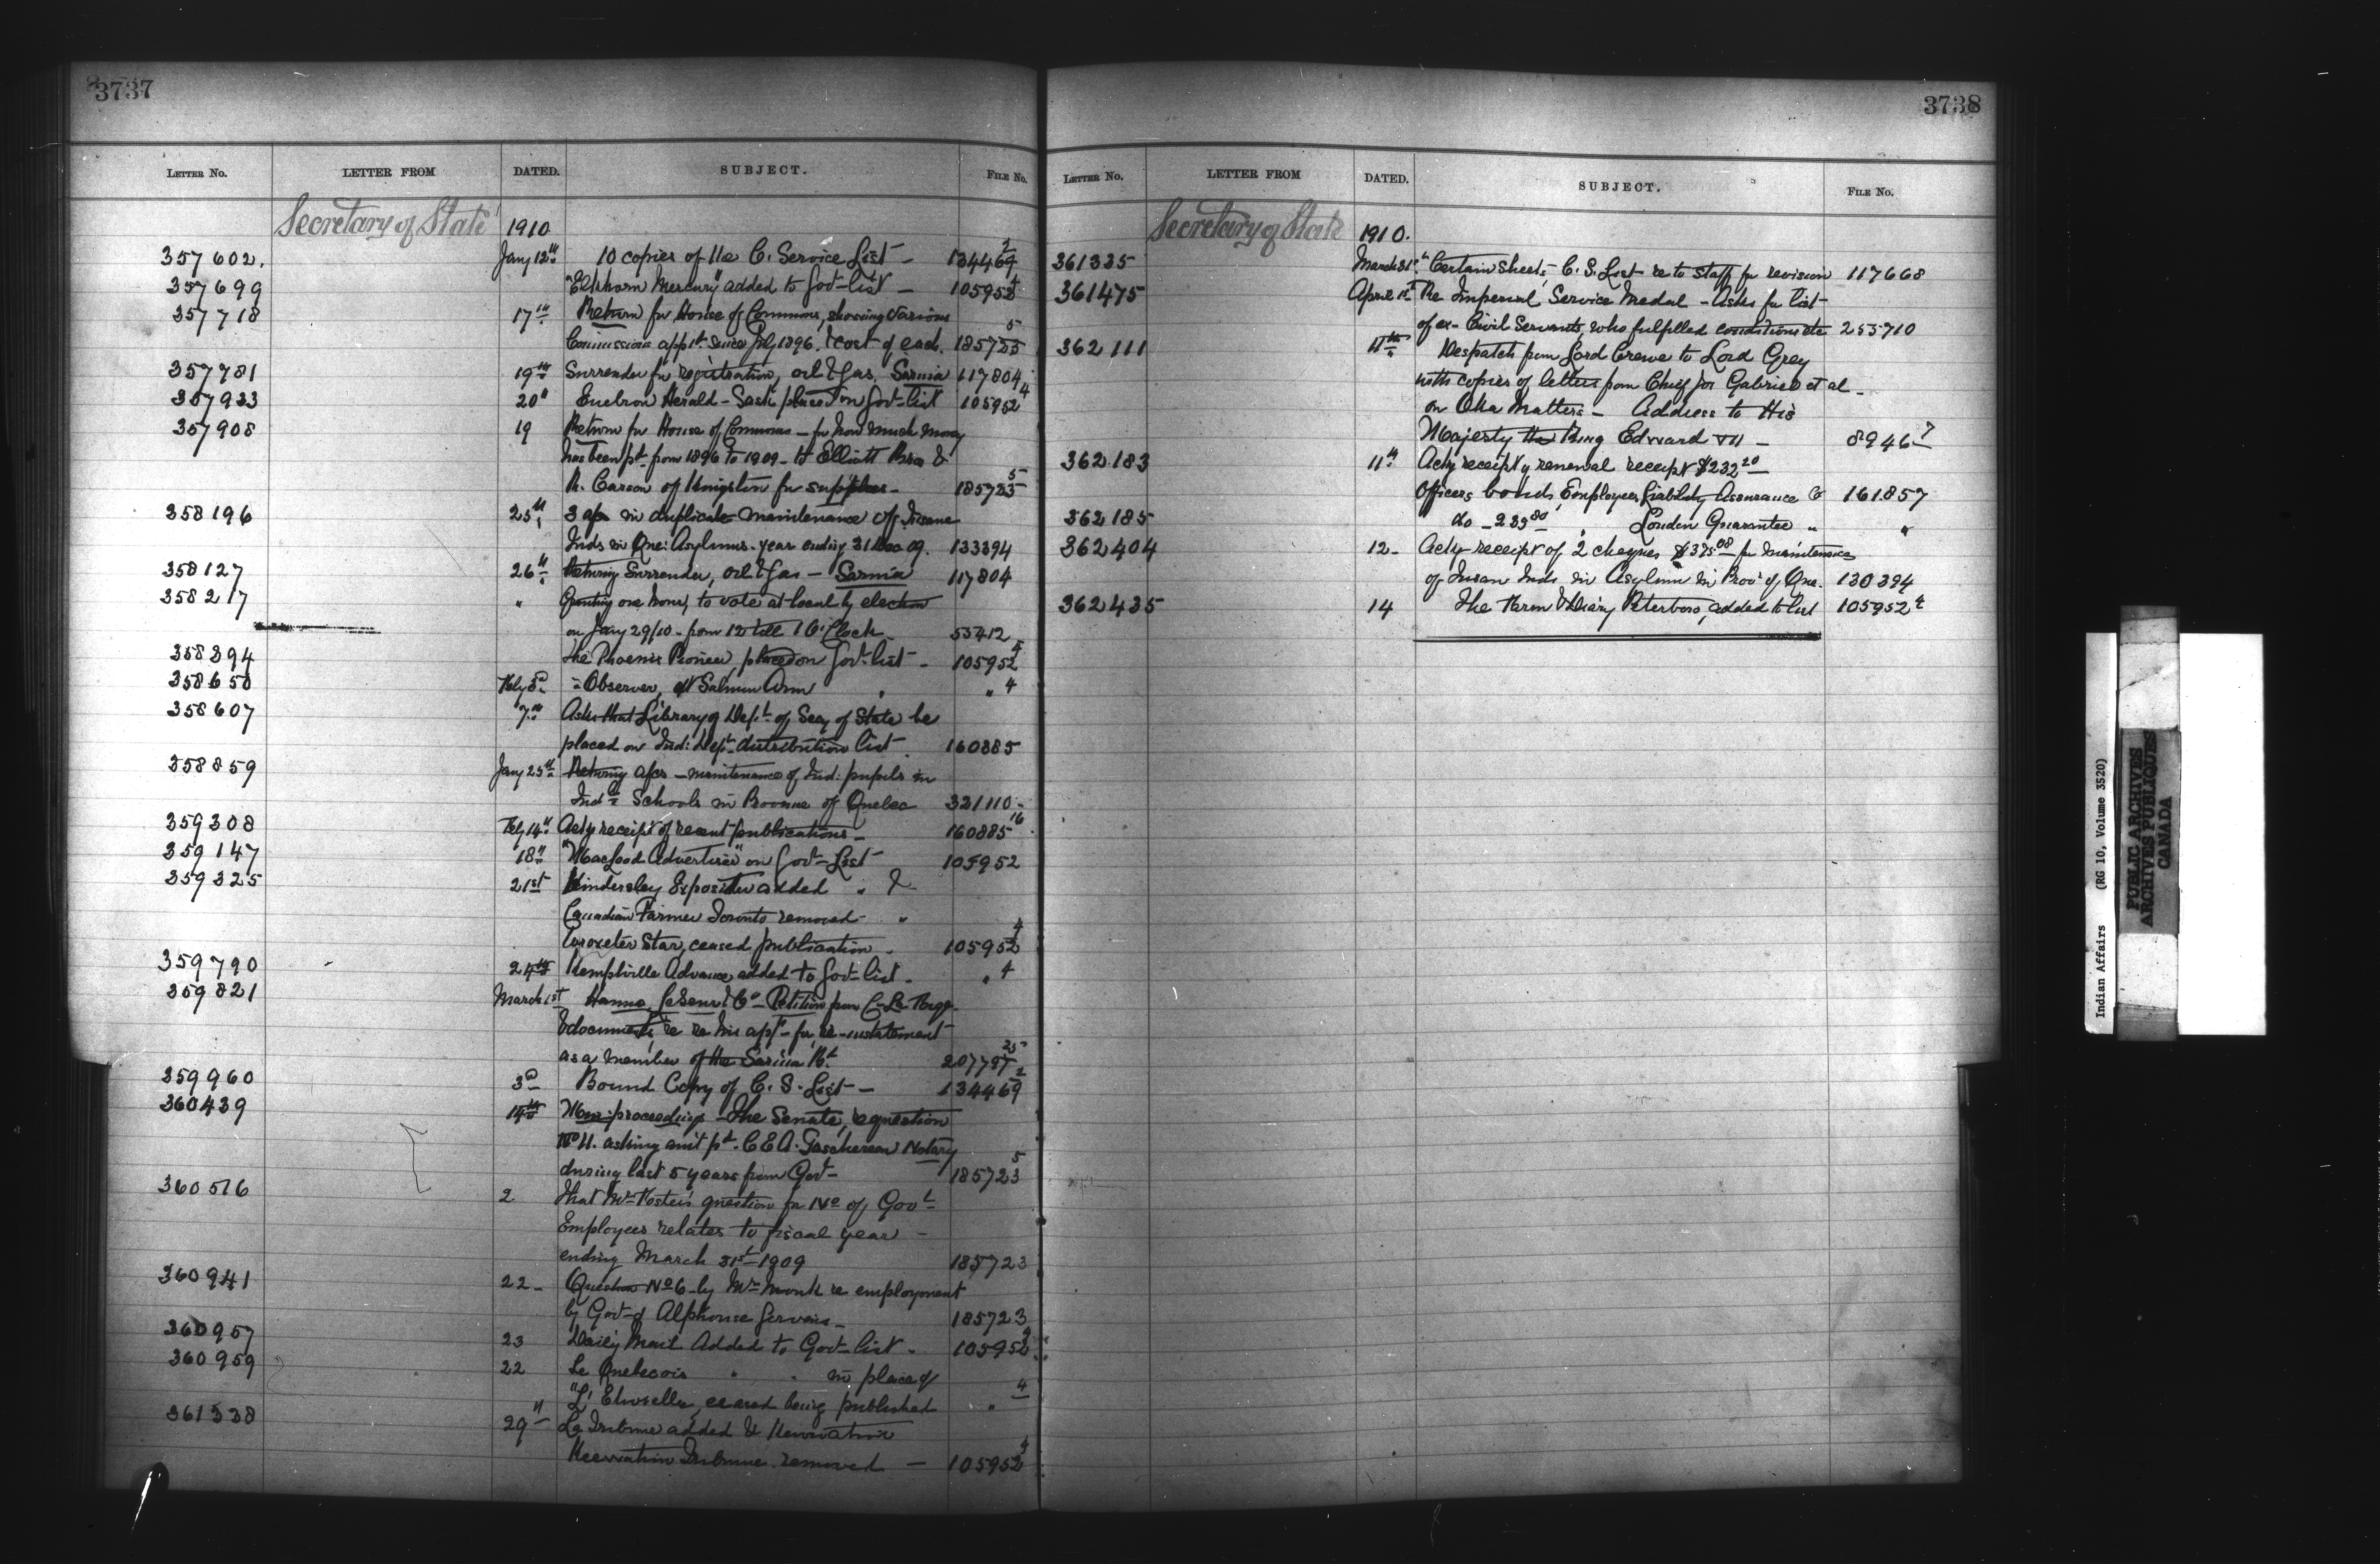 3737
LETTER NO. LETTER FROM DATED. SUBJECT. FILE NO.
Secretary of State 1910
357602. Jany 12th 10 copies of the C. Service List - 134469 2
357699 "Elkhorn Mercury" added to Govt list - 105952 4
357718 17th Return for House of Commons, showing various
Commissions appt. since July 1896. & cost of each. 185723 5
357781 19th Surrender for registration, oil & gas, Sarnia 117804
357933 20" Herald - Sask placed on Govt list 105952 4
357908 19 Return for House of Commons - for how much money
has been pd. from 1896 to 1909 - to Elliott Bros &
R. Carson of Kingston for supplies - 185723 5
358196 25th 3 a/cs in duplicate maintenance of Insane
Inds in Que: Asylums. year ending 31 Dec 09. 133394
358127 26th Returning Surrender, oil & gas - Sarnia 117804
358217 " Granting one hour, to vote at local by election
on Jany 29/10 - from 12 till 1 O'Clock 53412
358394 The Phoenix Pioneer, placed on Govt list - 105952 4
358650 Feby 3d " Observer, of Salmon Arm " " 4
358607 7th Asks that Library of Dept. of Secy of State be
placed on Ind: Dept. distribution list. 160885
358859 Jany 25th Returning a/cs - maintenance of Ind: pupils in
Indl. Schools in Province of Quebec 321110 -
359308 Feby 14th Ackg receipt of recent publications - 160885 16
359147 18th "Macleod Advertiser" on Govt List 105952
359325 21st Kindersley Expositor added " &
Canadian Farmer Toronto removed "
Wroxeter Star, ceased publication - 105952 4
359790 24th Kemptville Advance added to Govt list - " 4
359821 March 1st Hanna, LeSueur & Co - Petition from
& documents, re his appn. for re-instatement
as a member of the Sarnia Bd. 207797 25
359960 3d Bound Copy of C. S. List - 134469 2
360439 14th proceedings - The Senate, question
No 11. asking amt pd. C E A. Taschereau Notary
during last 5 years from Govt - 185723 5
360516 2 That Mr Foster's question for No of Govt
Employees relates to fiscal year -
ending March 31st 1909 185723
360941 22 - Question No 6 - by Mr Monk re employment
by Govt of Alphonse Gervais - 185723
360957 23 Daily Mail Added to Govt list - 105952 4
360959 22 Le Quebecois " " in place of
ceased being published " 4
361338 29" La Tribune added &
Tribune removed - 105952 4
3738
LETTER NO. LETTER FROM DATED. SUBJECT. FILE NO.
Secretary of State 1910.
361335 March 31st Certain sheets, C. S. List re to staff for revision 117668
361475 April 1st Re Imperial Service Medal - Asks for list
of ex-Civil Servants, who fulfilled conditions etc 253710
362111 11th Despatch from Lord Crewe to Lord Grey
with copies of letters from Chief Jos Gabriel et al -
on Oka Matters - Address to His
Majesty King Edward VII - 8946 7
362183 11th Ackg receipt of renewal receipt $232 20
Officers bonds, Employers Liability Assurance Co 161857
362185 do - 239 80 " London Guarantee " "
362404 12 - Ackg receipt of 2 cheques $375.08 for maintenance
of Insan Inds. in Asylum in Prov of Que. 130394
362435 14 The Farm & Dairy Peterboro, added to list 105952 4
Indian Affairs (RG 10, Volume 3520)
PUBLIC ARCHIVES
ARCHIVES PUBLIQUES
CANADA